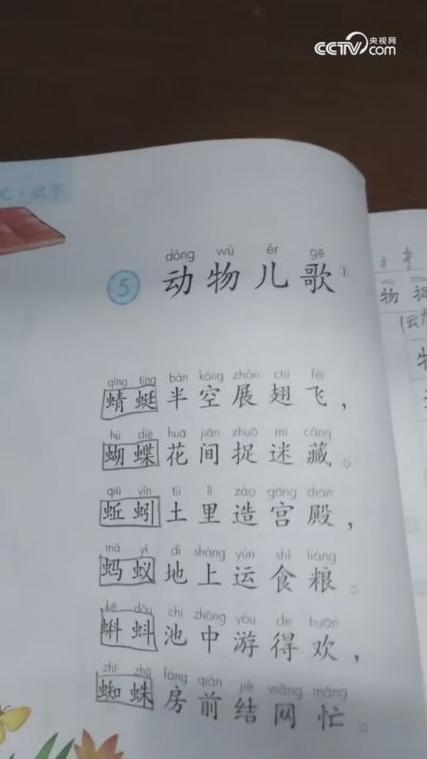 CCTV 央视网
com
识字
dòng wù ér gē
5 动物儿歌①
qīng tíng bàn kōng zhǎn chì fēi
蜻蜓半空展翅飞，
hú dié huā jiān zhuō mí cáng
蝴蝶花间捉迷藏。
qiū yǐn tǔ lǐ zào gōng diàn
蚯蚓土里造宫殿，
mǎ yǐ dì shàng yùn shí liáng
蚂蚁地上运食粮。
kē dǒu chí zhōng yóu de huān
蝌蚪池中游得欢，
zhī zhū fáng qián jié wǎng máng
蜘蛛房前结网忙。
物